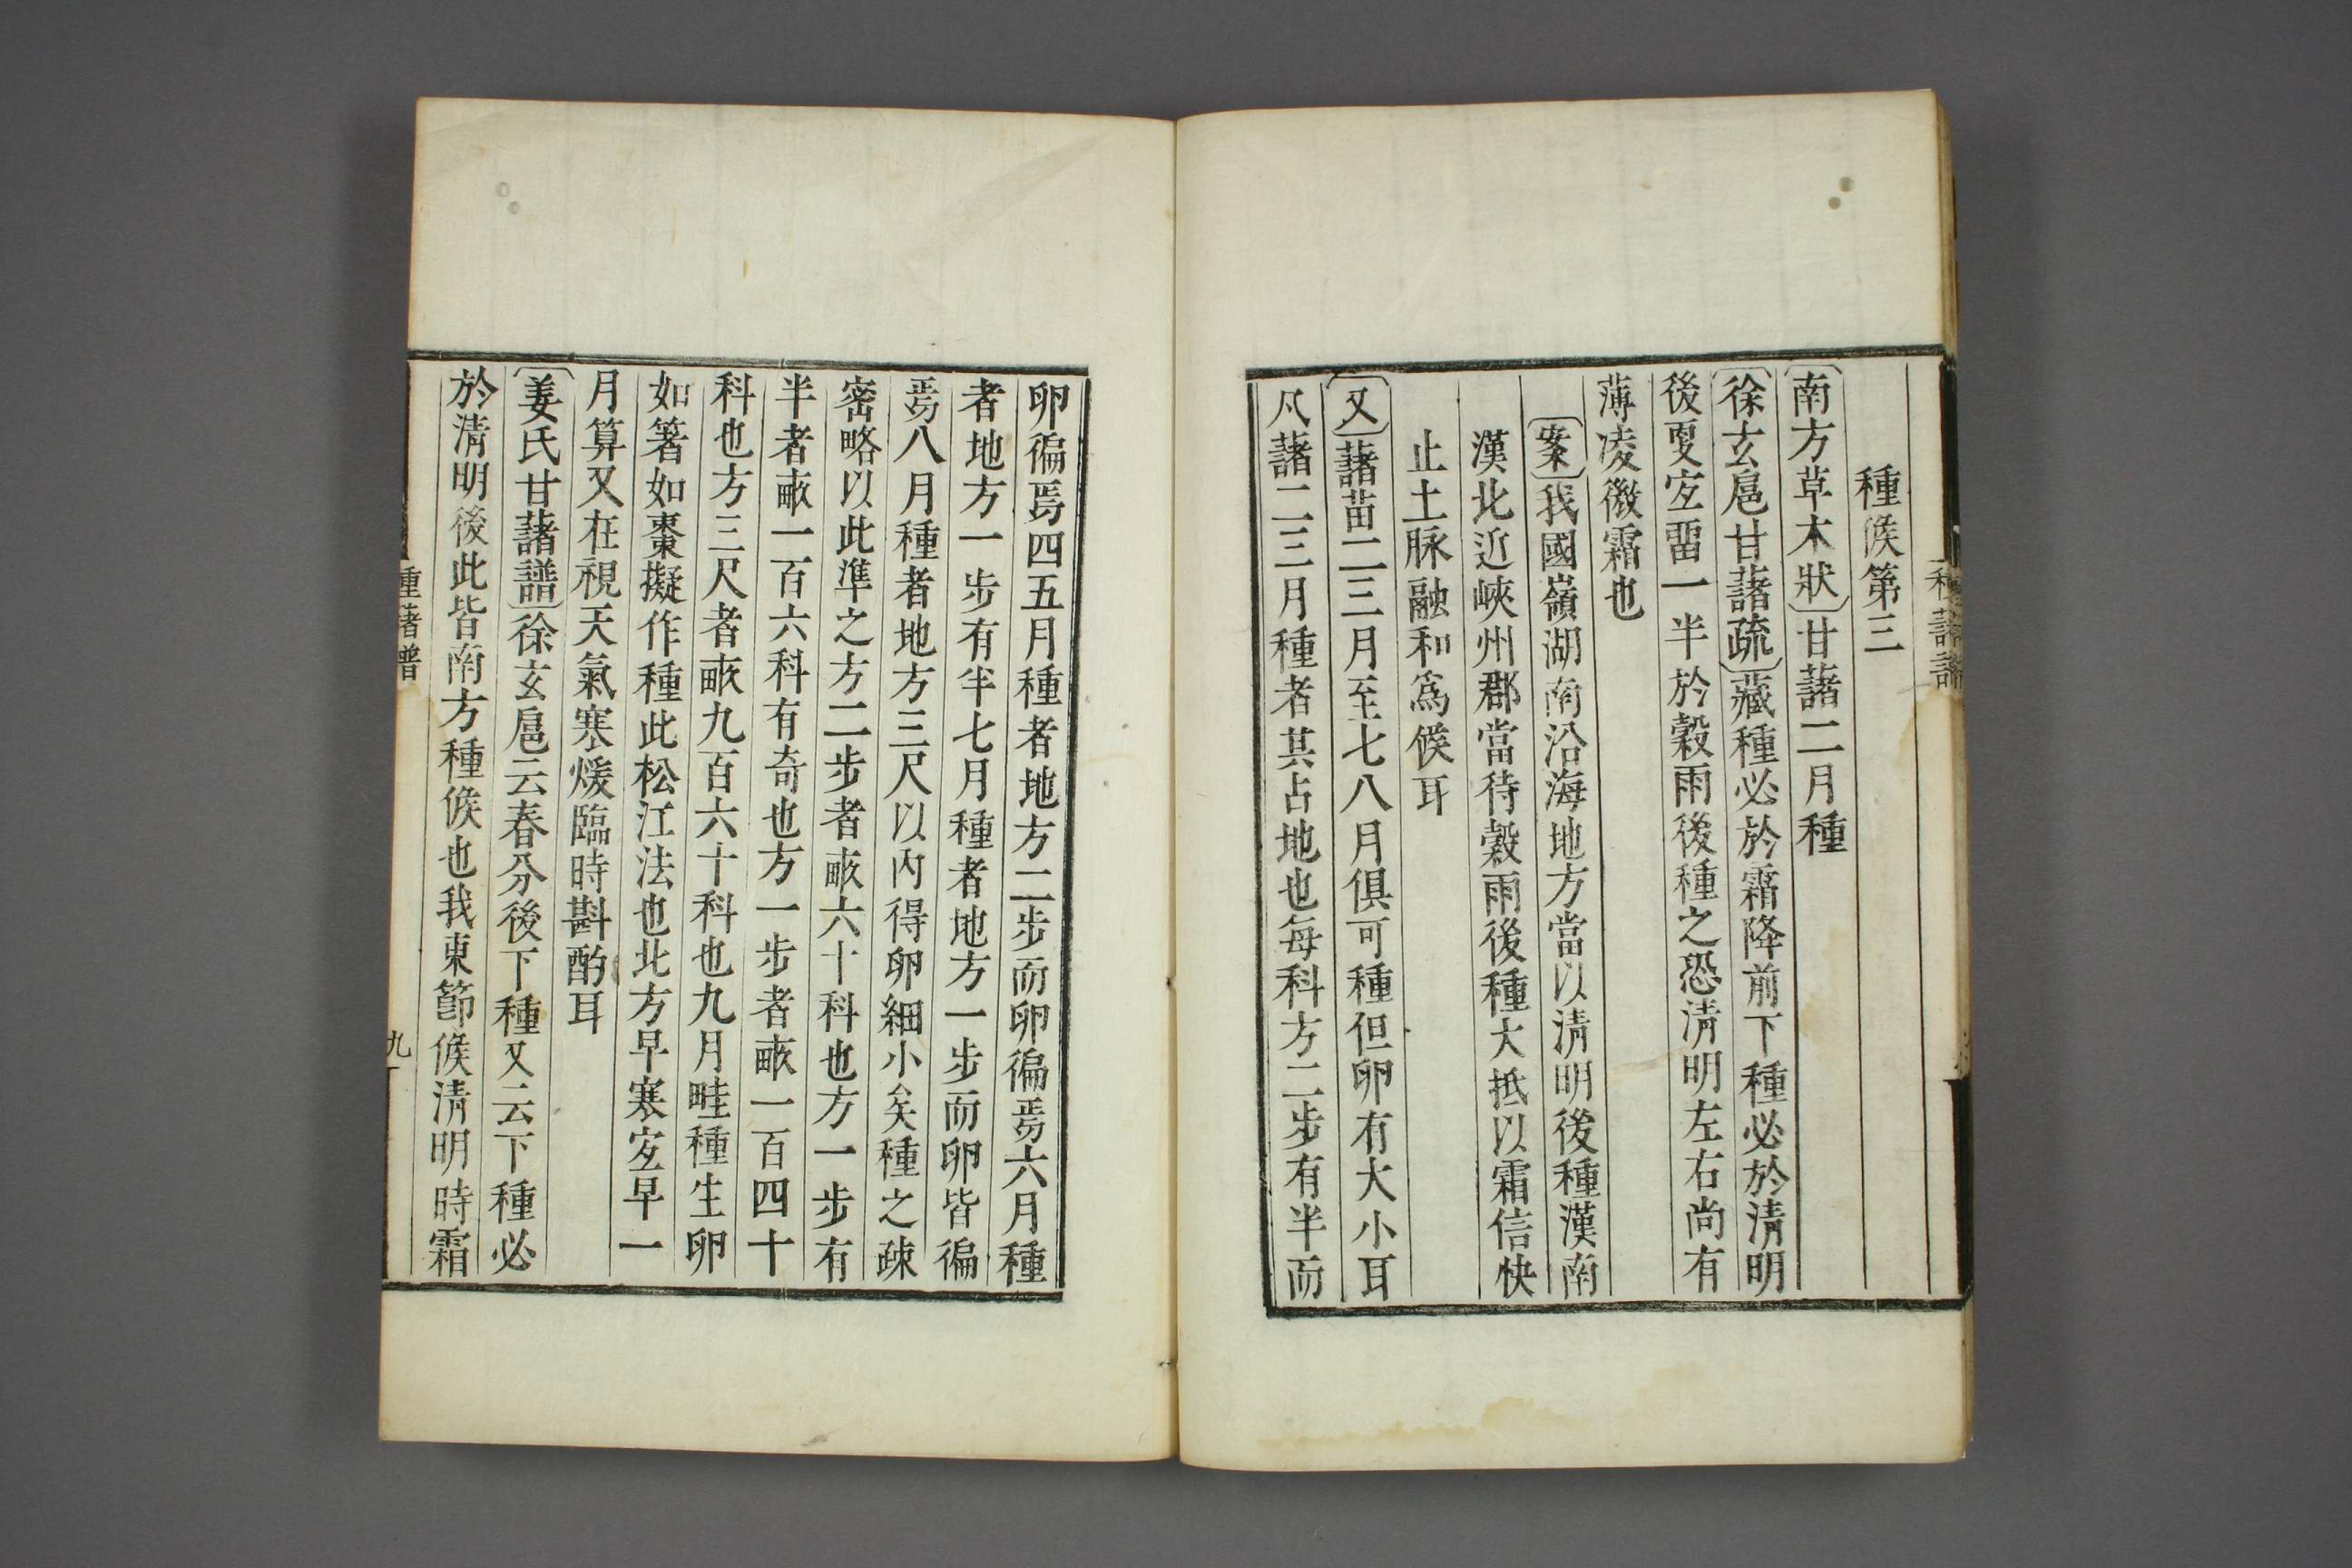 種藷譜
種候第三
南方草木狀甘藷二月種
徐玄扈甘藷疏藏種必於霜降前下種必於清明
後更宜畱一半於穀雨後種之恐清明左右尚有
薄凌微霜也
案我國嶺湖南沿海地方當以清明後種漢南
漢北近峽州郡當待穀雨後種大抵以霜信快
止土脉融和爲候耳
又藷苗二三月至七八月俱可種但卵有大小耳
凡藷二三月種者其占地也每科方二步有半而
卵徧焉四五月種者地方二步而卵徧焉六月種
者地方一步有半七月種者地方一步而卵皆徧
焉八月種者地方三尺以內得卵細小矣種之疎
密略以此準之方二步者畝六十科也方一步有
半者畝一百六科有奇也方一步者畝一百四十
科也方三尺者畝九百六十科也九月畦種生卵
如箸如棗擬作種此松江法也北方早寒宜早一
月算又在視天氣寒煖臨時斟酌耳
姜氏甘藷譜徐玄扈云春分後下種又云下種必
於清明後此皆南方種候也我東節候清明時霜
種藷譜
九